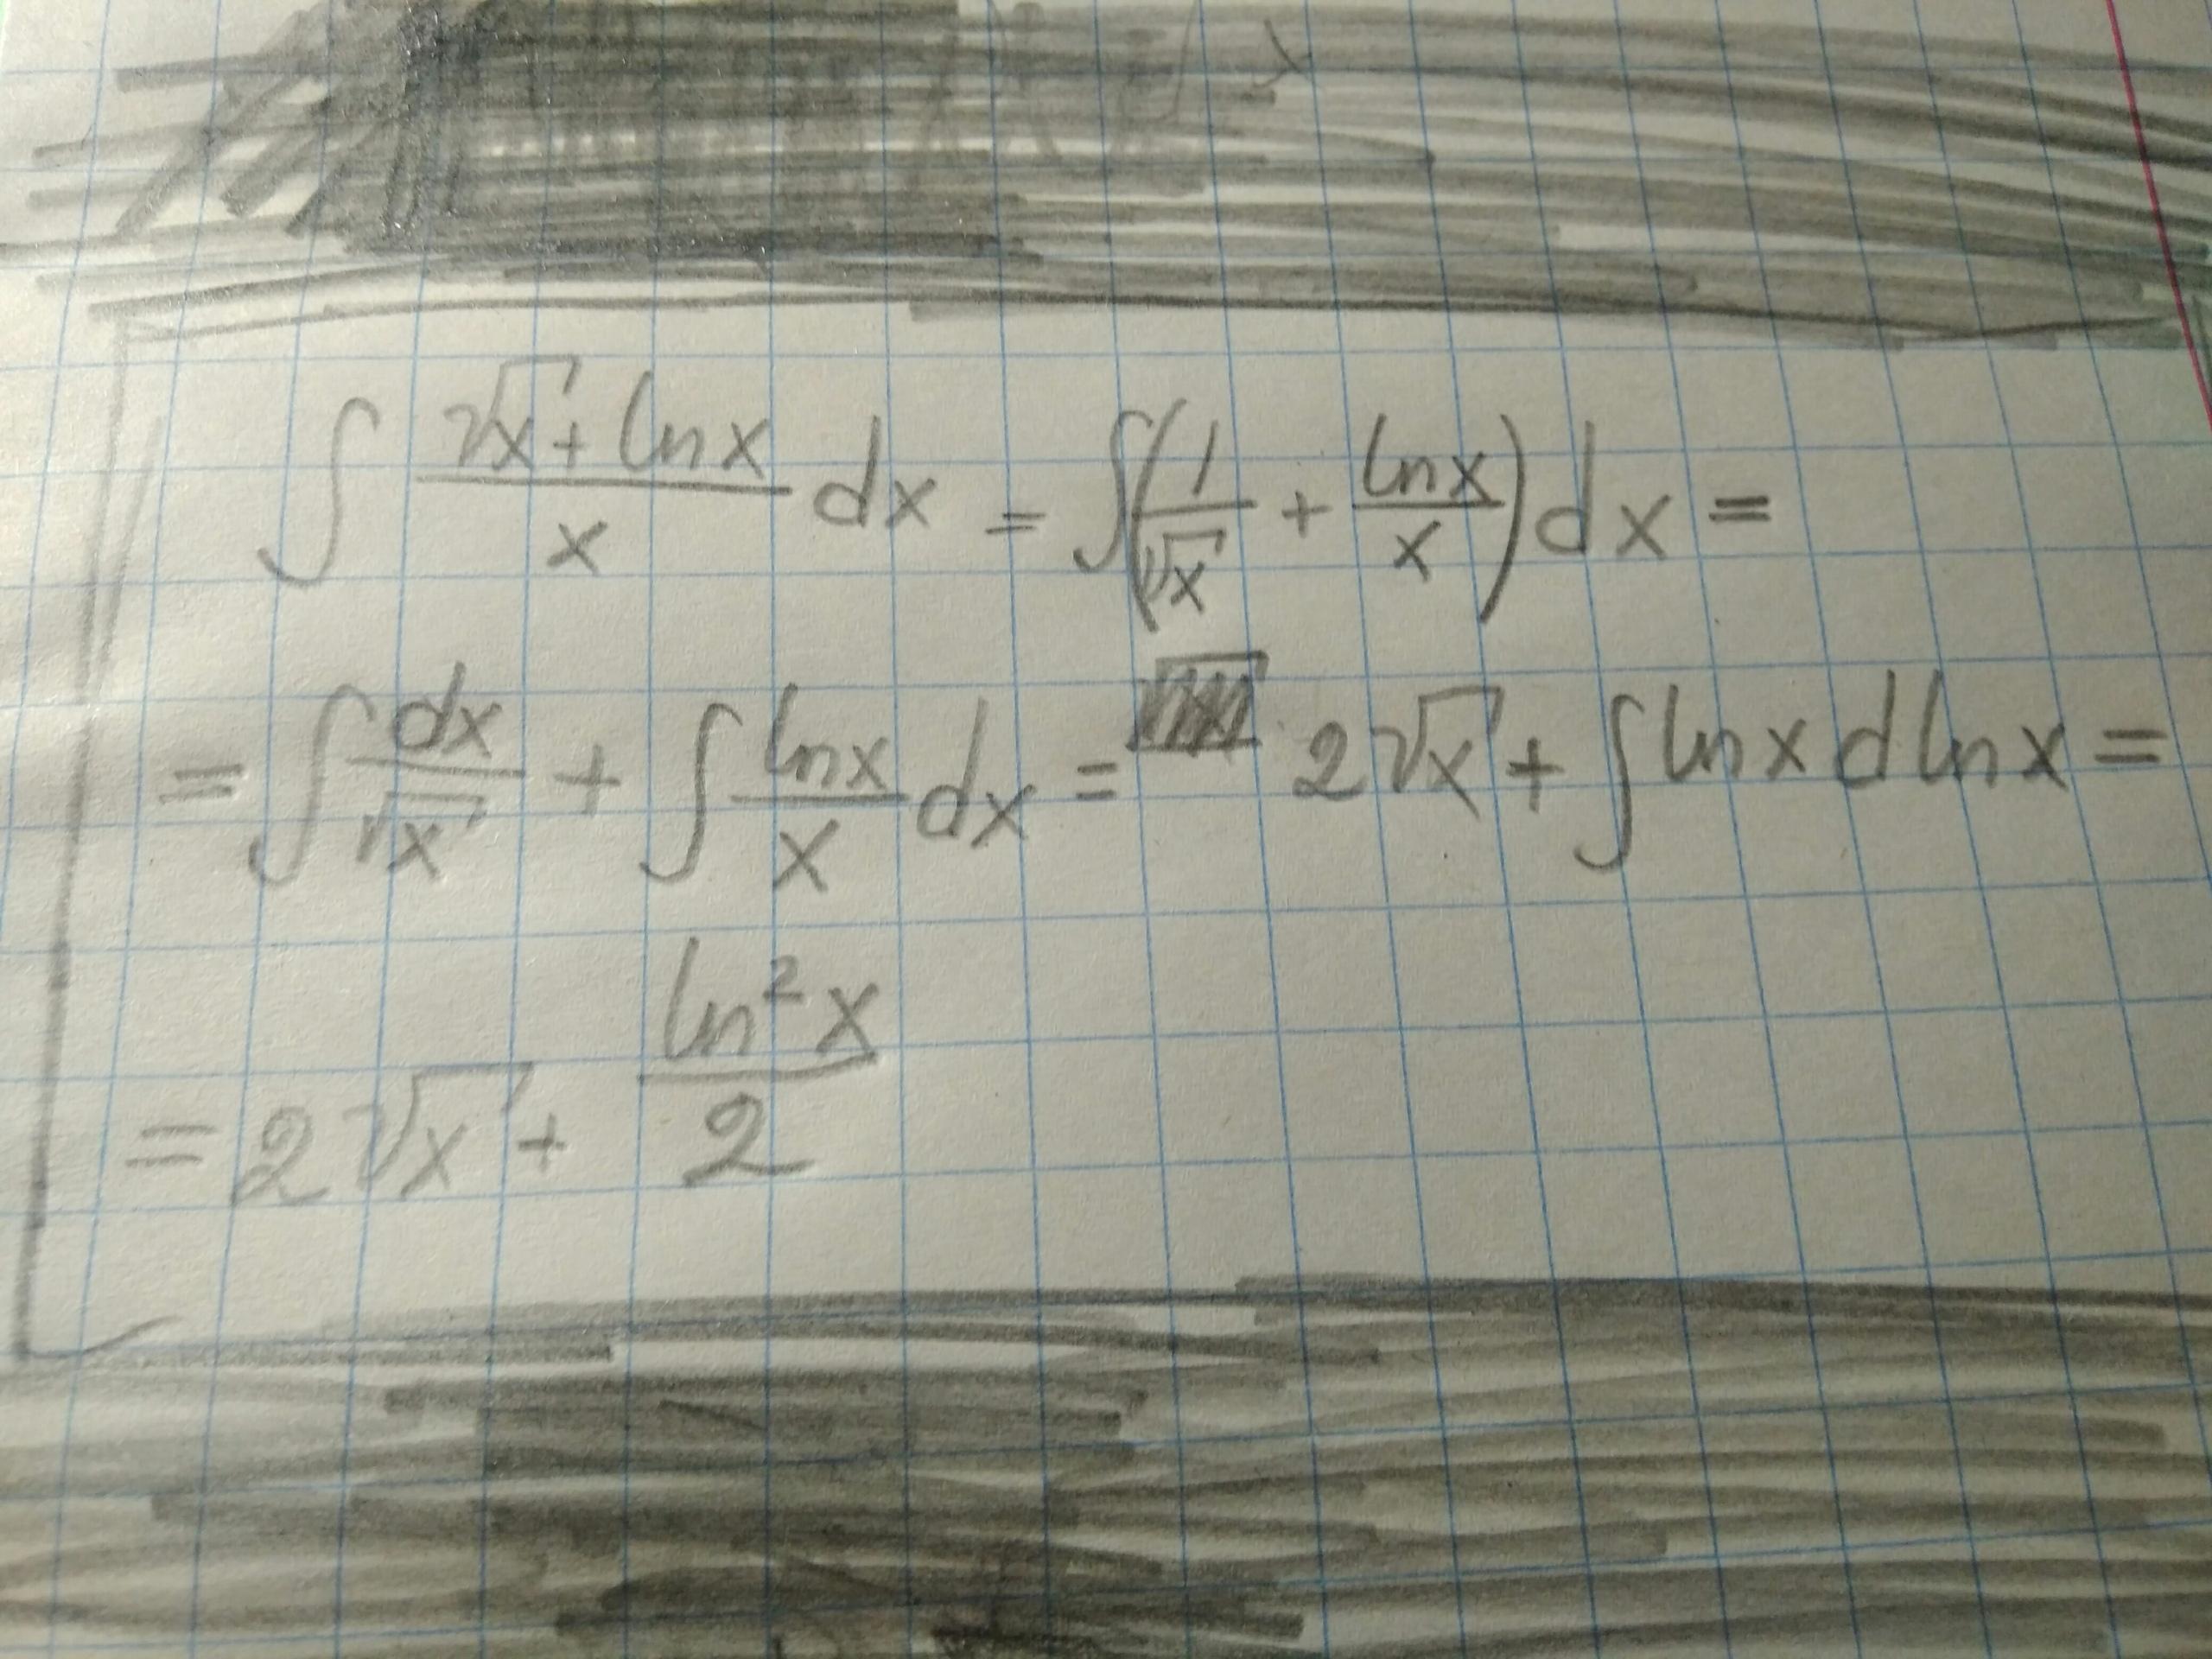 ∫ (√x + ln x)/x dx = ∫(1/√x + ln x/x) dx =
= ∫ dx/√x + ∫ ln x/x dx = 2√x + ∫ ln x d ln x =
= 2√x + ln² x/2